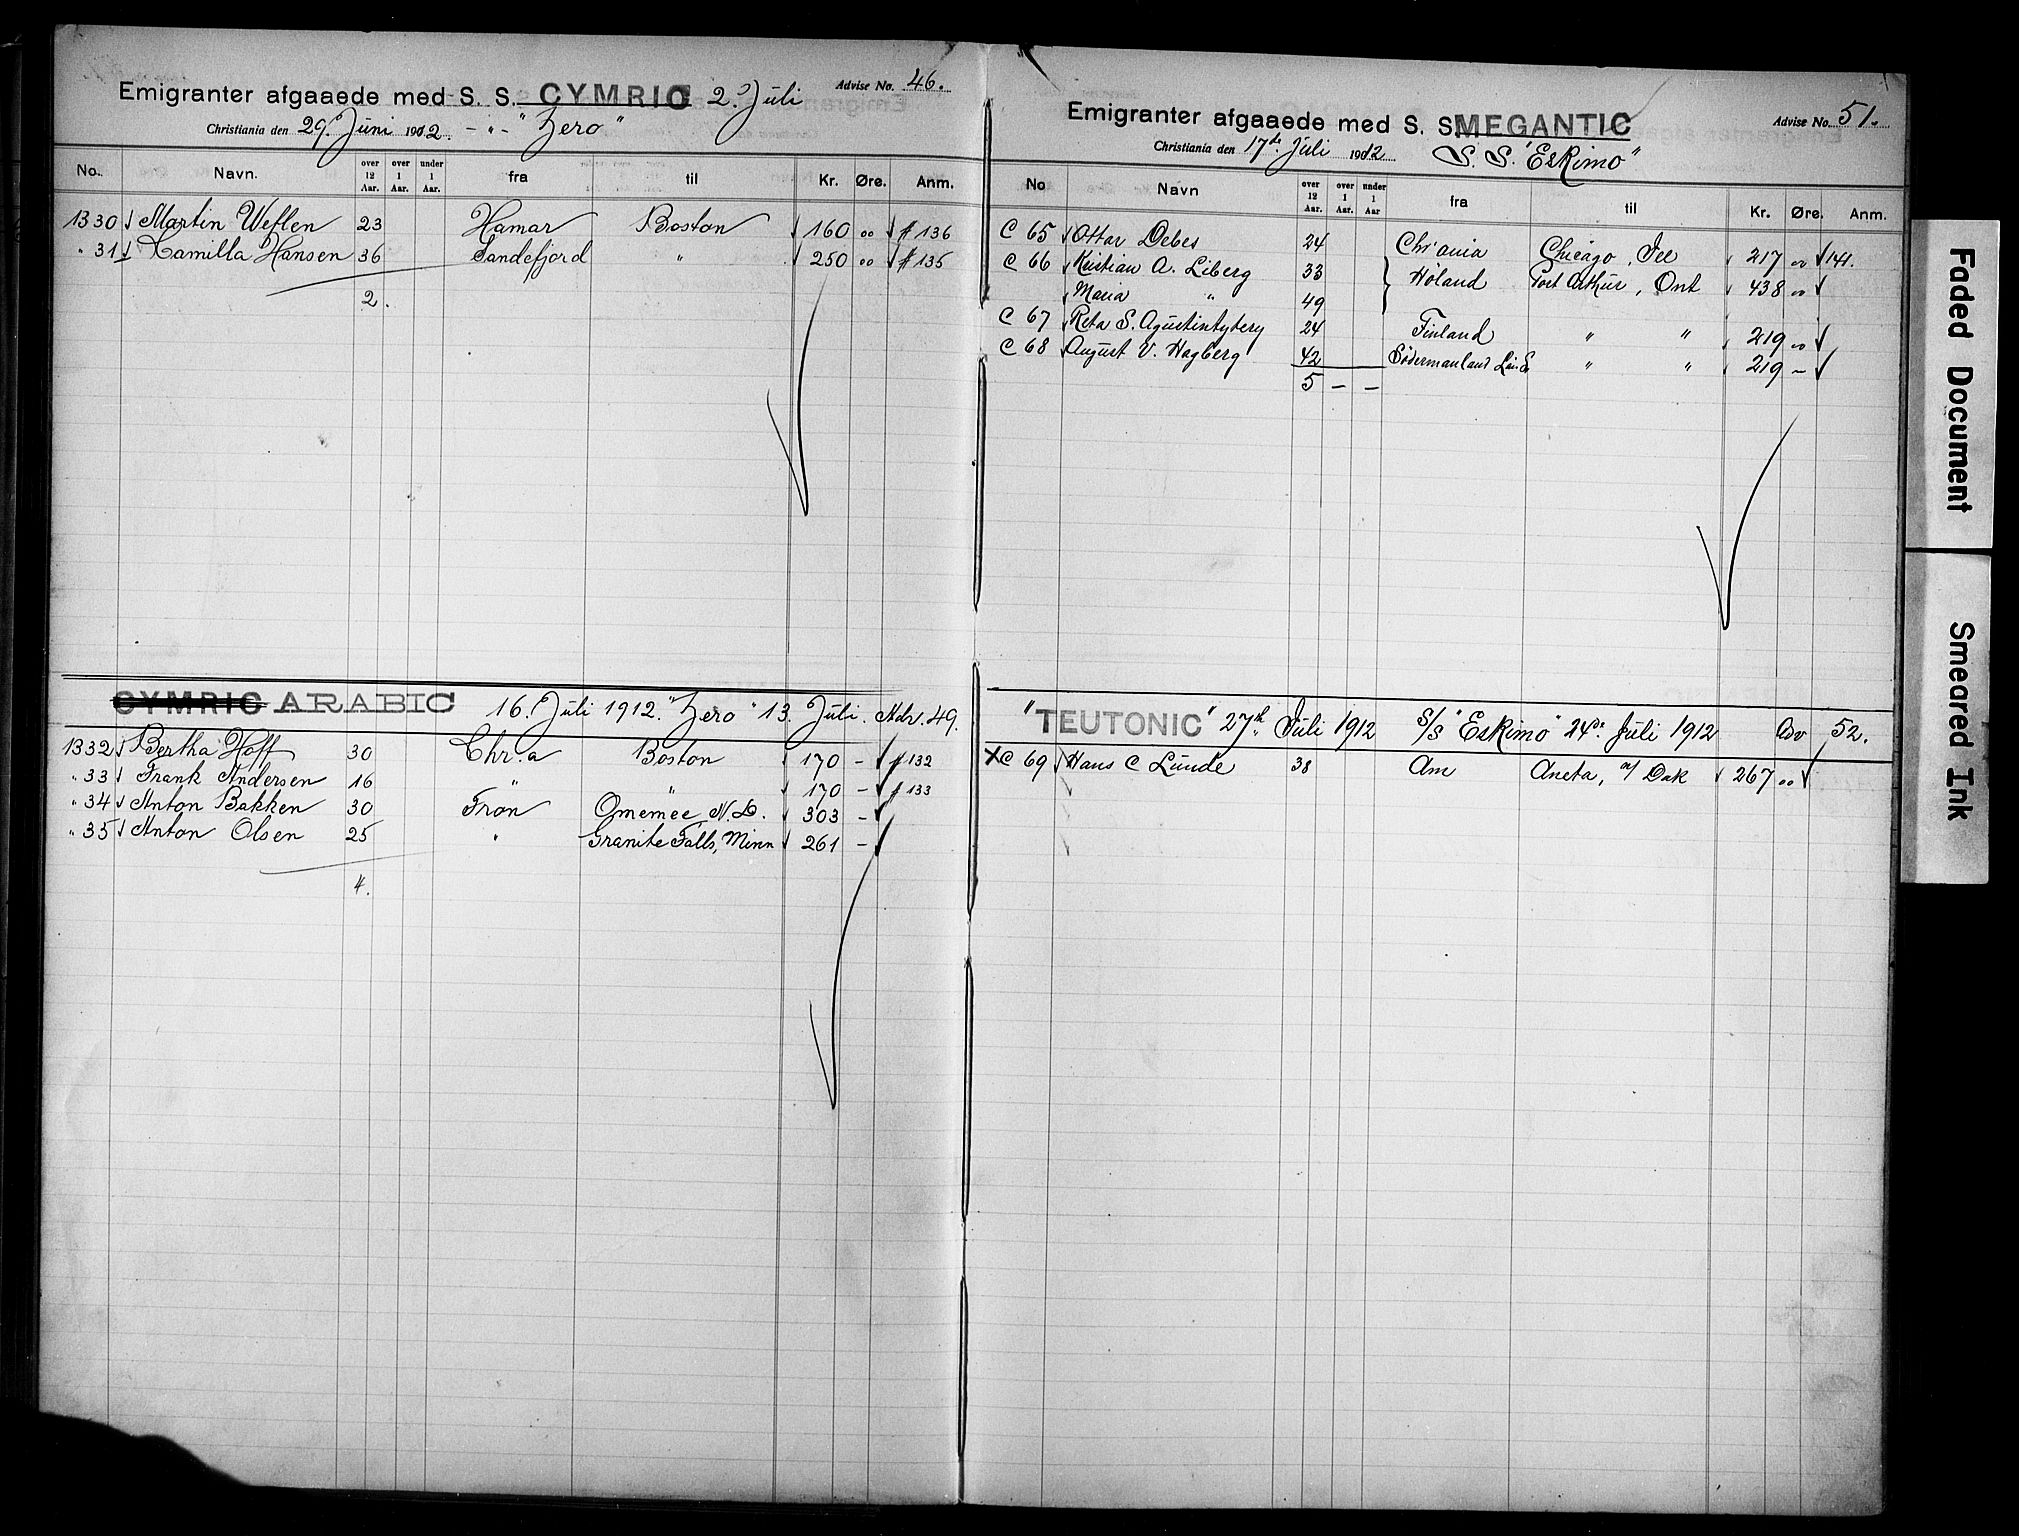 Emigranter afgaaede med S. S. CYMRIC 2. Juli Advise No. 46.
Christiania den 29. Juni 1912 - " - "Zero"
No. Navn. over 12 Aar. over 1 Aar. under 1 Aar. fra til Kr. Øre. Anm.
1330 Martin Weflen 23 Hamar Boston 160 00 # 136
" 31 Kamilla Hansen 36 Sandefjord " 250 00 # 135
2.
CYMRIC ARABIC 16. Juli 1912. "Zero" 13. Juli. Adv. 49.
1332 Bertha Hoff 30 Chr.a Boston 170 - # 132
" 33 Frank Andersen 16 " " 170 - # 133
" 34 Anton Bakken 30 Fron Omemee N.D. 303 -
" 35 Anton Olsen 25 " Granite Falls, Minn 261 -
4.
Emigranter afgaaede med S. S. MEGANTIC Advise No. 51.
Christiania den 17de Juli 1912 S. S. "Eskimo"
No Navn over 12 Aar. over 1 Aar. under 1 Aar fra til Kr. Øre. Anm.
C 65 Ottar Debes 24 Chr'ania Chicago, Ill 217 00 141.
C 66 Kristian A. Liberg 33 Høland Port Arthur, Ont 438 00
Maria " 49
C 67 Reta S. 24 Finland " " 219 00
C 68 August V. Hagberg 42 Södermanland Län S " " 219 -
5 - -
"TEUTONIC" 27th Juli 1912 S/S "Eskimo" 24de Juli 1912 Adv 52.
X C 69 Hans C Lunde 38 Am Aneta, n/ Dak 267 00
Faded Document
Smeared Ink